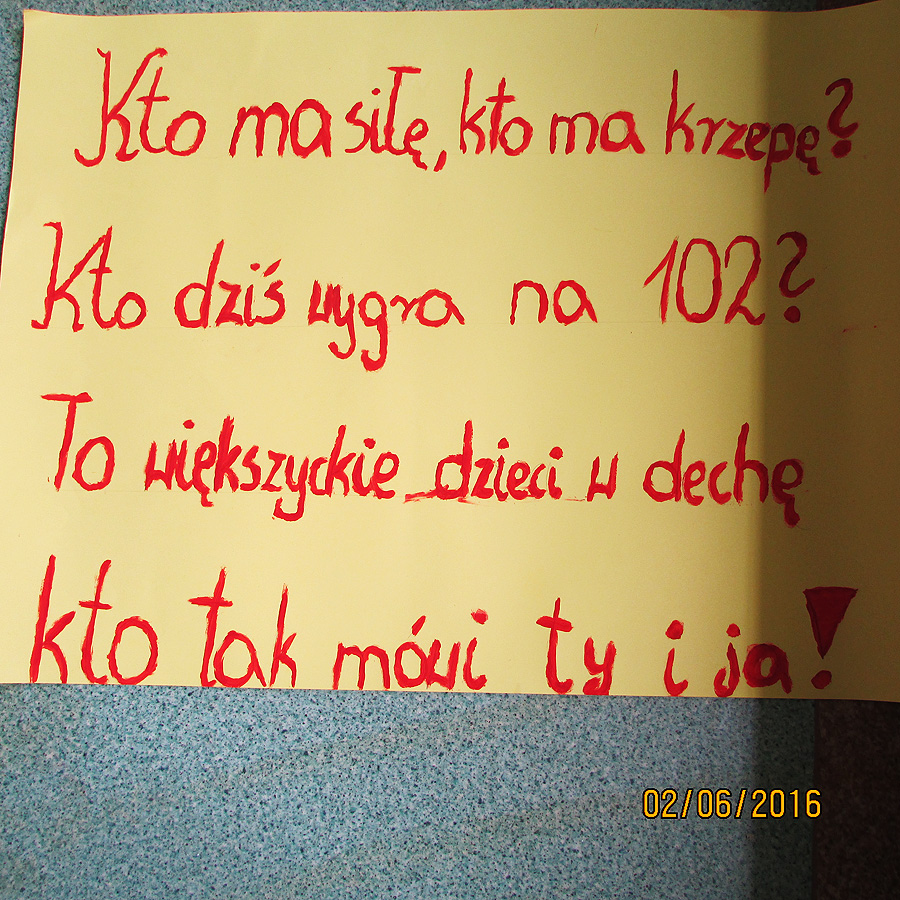 Kto ma siłę, kto ma krzepę?
Kto dziś wygra na 102?
To większyckie dzieci w dechę
kto tak mówi ty i ja!
02/06/2016